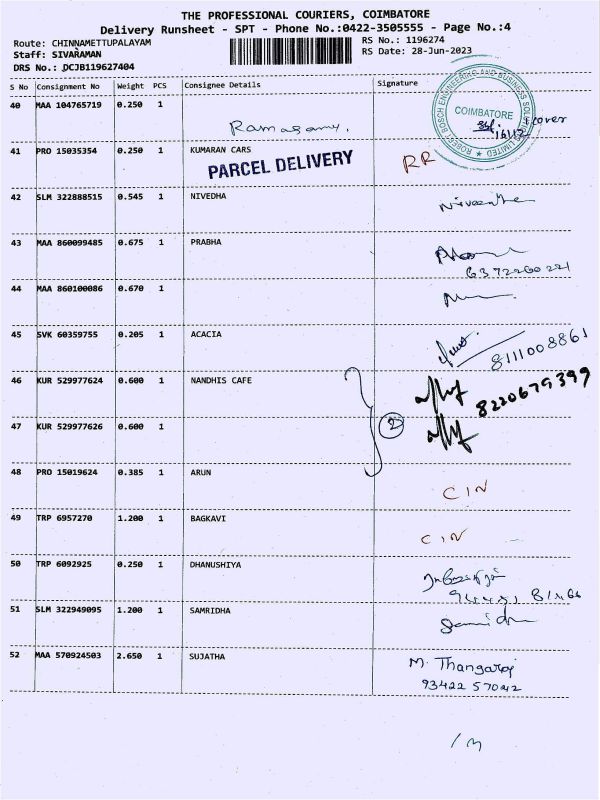 THE PROFESSIONAL COURIERS, COIMBATORE
Delivery Runsheet - SPT - Phone No.:0422-3505555 - Page No.:4
Route: CHINNAMETTUPALAYAM
RS No.: 1196274
Staff: SIVARAMAN
RS Date: 28-Jun-2023
DRS No.: DCJB119627404
S No Consignment No Weight PCS Consignee Details Signature
ROBERT BOSCH ENGINEERING AND BUSINESS SOLUTIONS LIMITED
COIMBATORE
40 MAA 104765719 0.250 1
Ramasamy. cover
41 PRO 15035354 0.250 1 KUMARAN CARS RR
PARCEL DELIVERY
42 SLM 322888515 0.545 1 NIVEDHA
43 MAA 860099485 0.675 1 PRABHA
6372260221
44 MAA 860100086 0.670 1
45 SVK 60359755 0.205 1 ACACIA
8111008861
46 KUR 529977624 0.600 1 NANDHIS CAFE
8220679399
2
47 KUR 529977626 0.600 1
48 PRO 15019624 0.385 1 ARUN CIN
49 TRP 6957270 1.200 1 BAGKAVI CIN
50 TRP 6092925 0.250 1 DHANUSHIYA
51 SLM 322949095 1.200 1 SAMRIDHA
52 MAA 570924503 2.650 1 SUJATHA M. Thangaraj
93422 57022